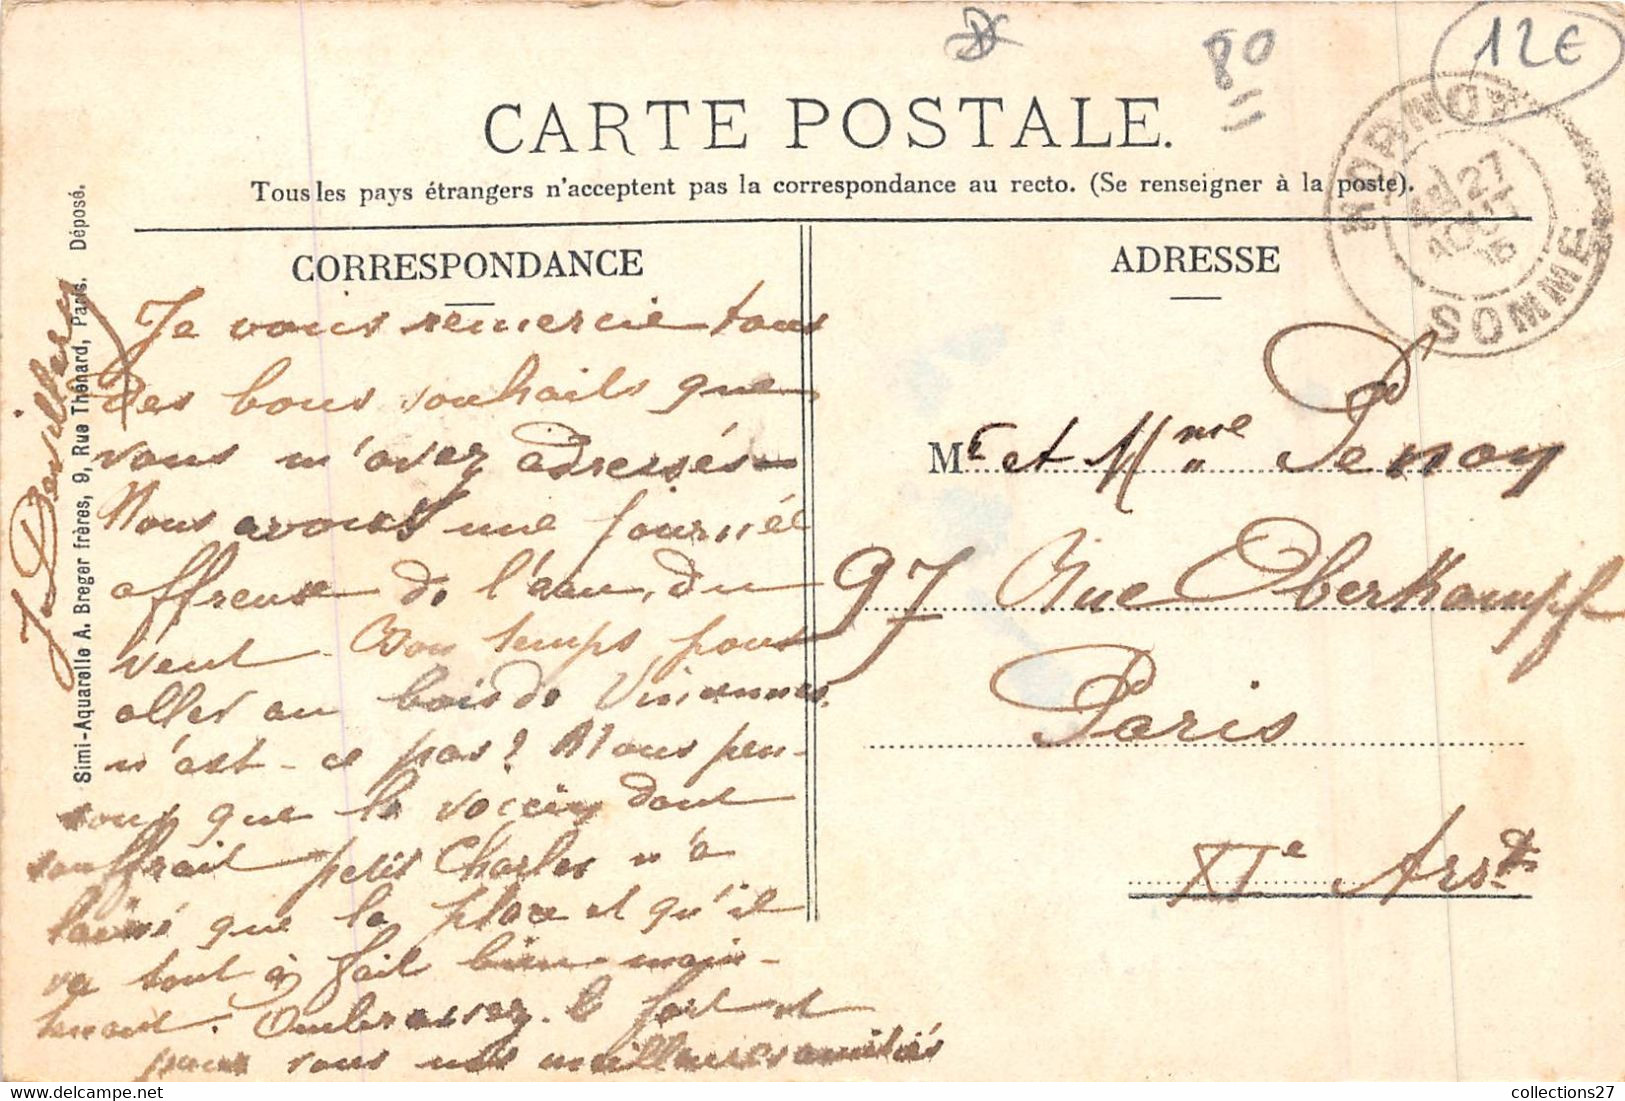 12€
80
CARTE POSTALE.
Tous les pays étrangers n'acceptent pas la correspondance au recto. (Se renseigner à la poste).
27
AOUT
SOMME
CORRESPONDANCE
Je vous remercie tous
des bons souhaits que
vous m'avez adressés
Nous avons une journée
affreuse de l'eau, du
vent. Bon temps pour
aller au bois de Vincennes.
n'est-ce pas? Nous pen-
sons que le vaccin dont
souffrait petit Charles n'a
laissé que la place et qu'il
va tout à fait bien main-
tenant. Embrassez-le fort et
pour vous nos meilleures amitiés
J. Devillers
Simi-Aquarelle A. Breger frères, 9, Rue Thénard, Paris. Déposé.
ADRESSE
Mr et Mme Penoy
97 Rue Oberkampf
Paris
XIe Arrdt
collections27